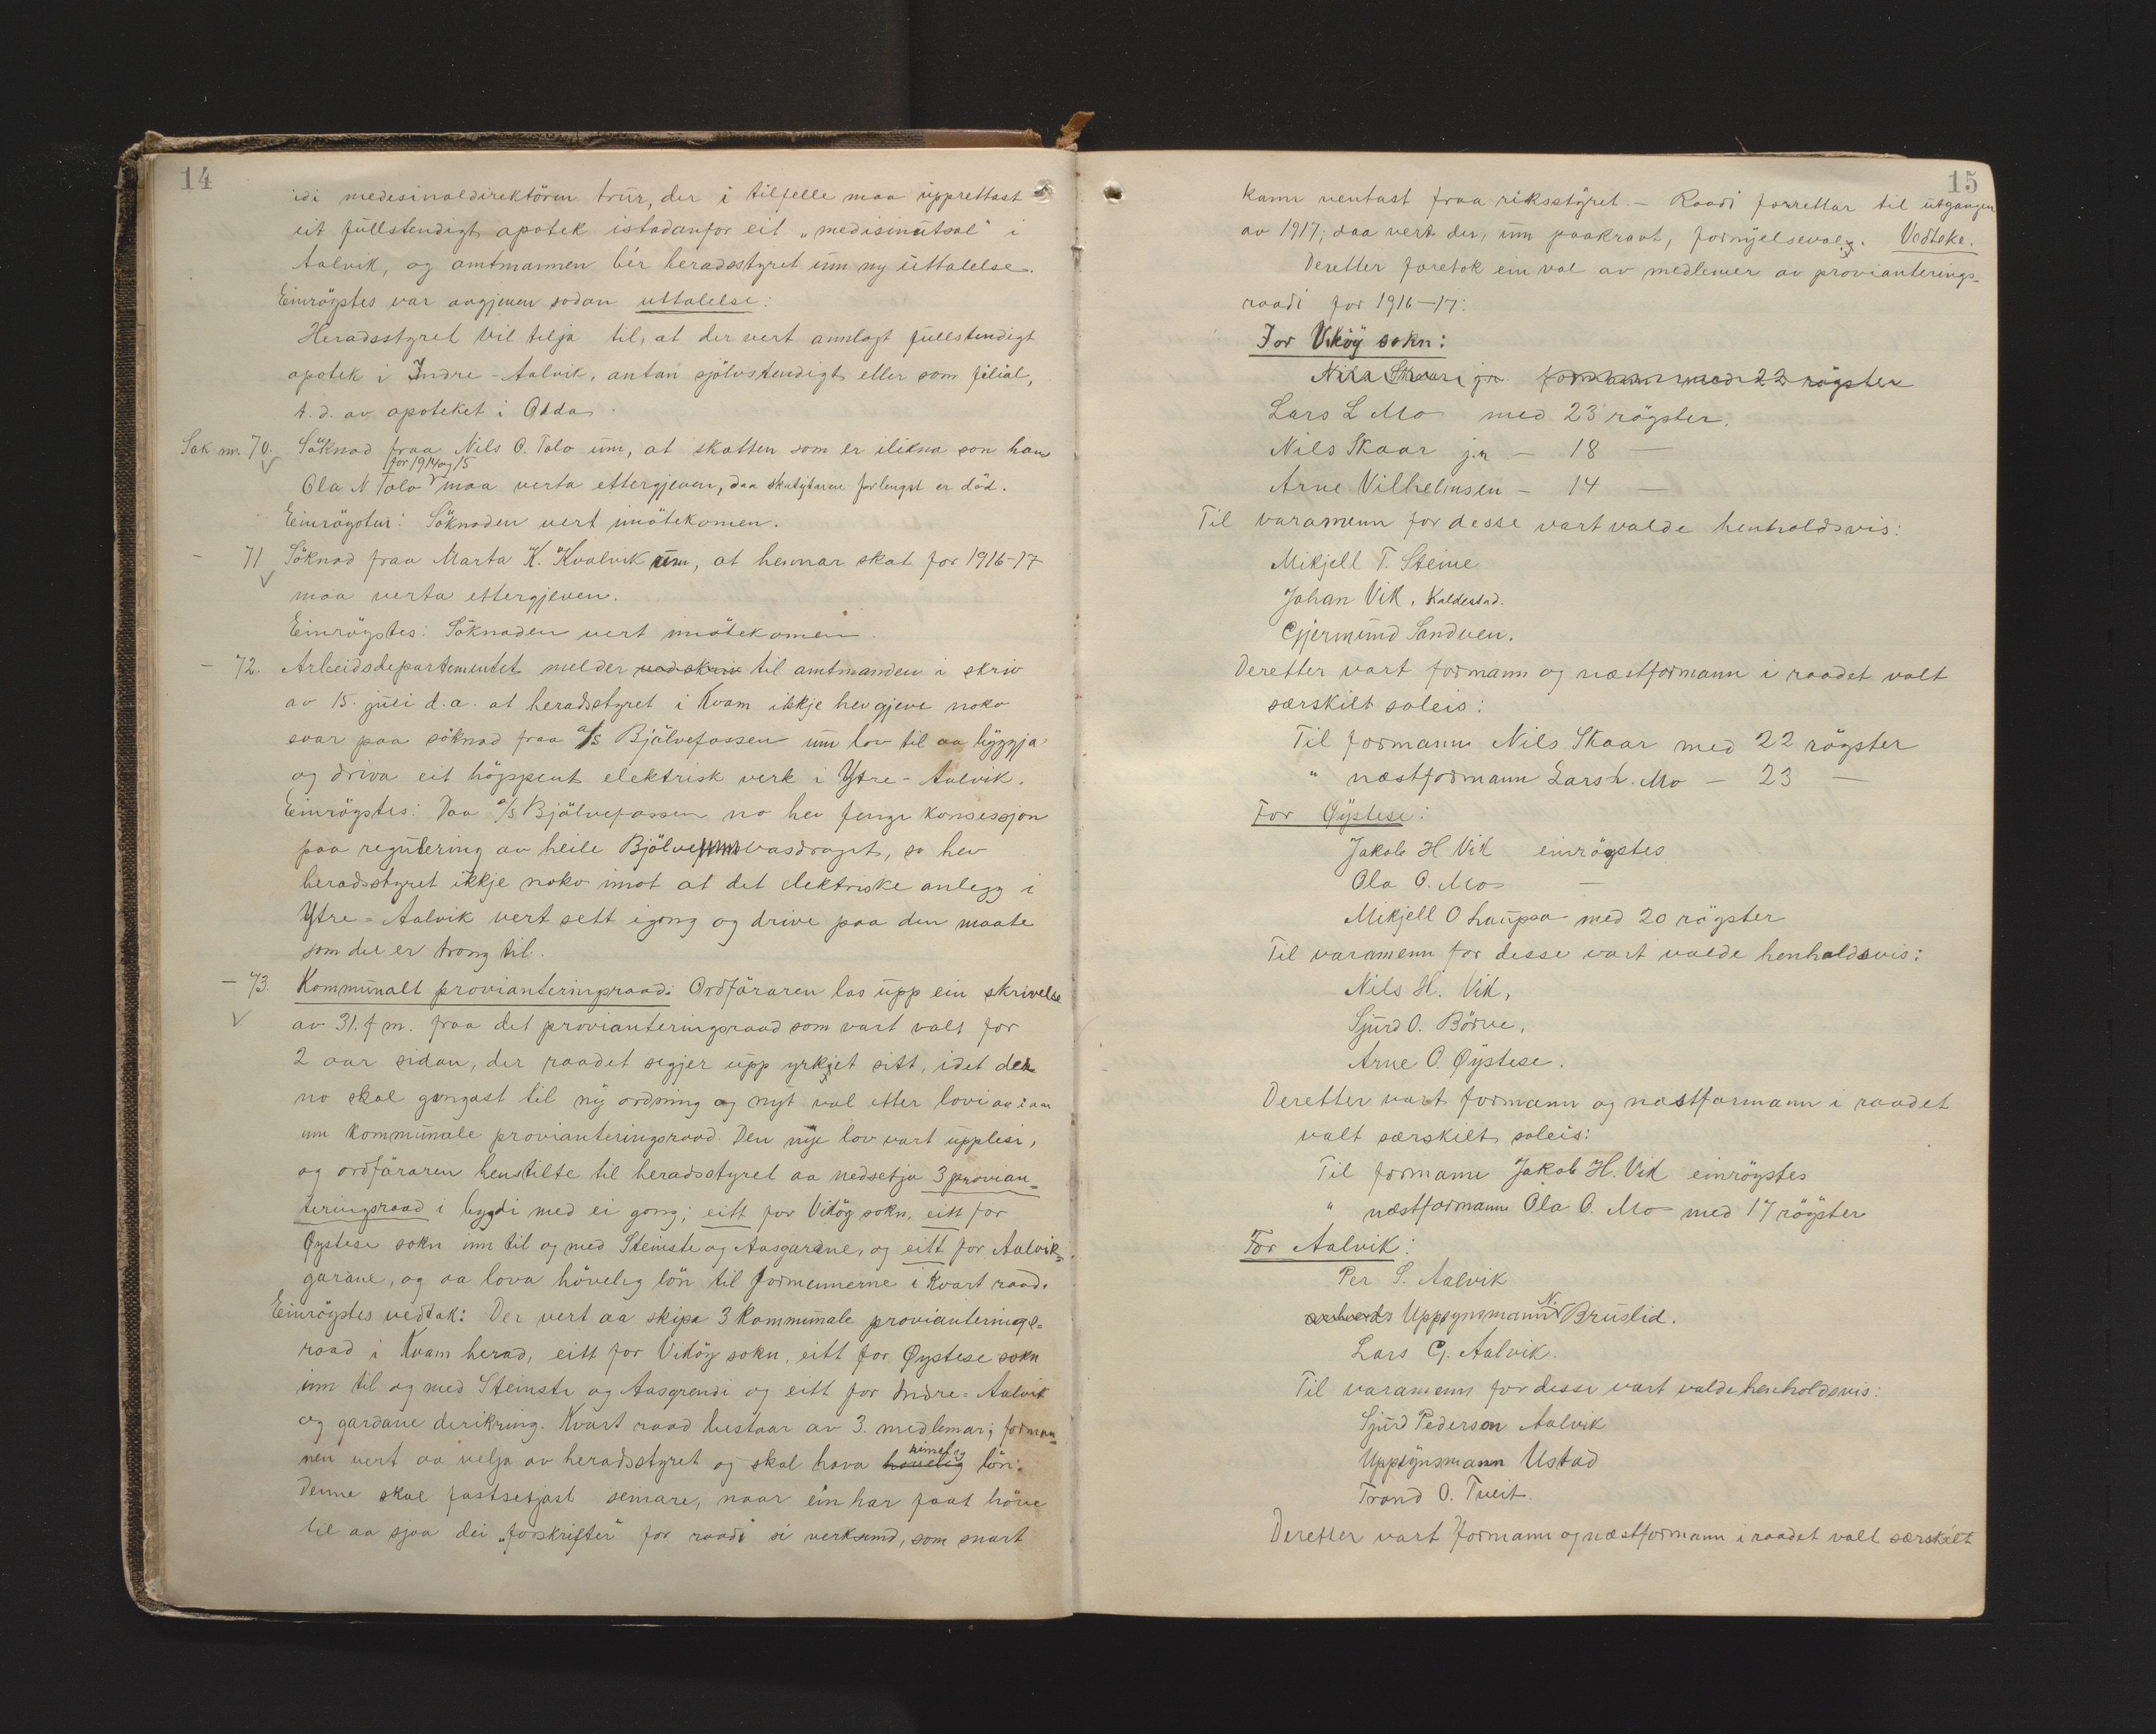 14
idi medesinaldirektören trur, der i tilfelle maa upprettast
eit fullstendigt apotek istadanfor eit „medisinutsal" i
Aalvik, og amtmannen bér heradsstyret um ny uttalelse.
Einrögstes var avgjeven sodan uttalelse:
Heradsstyret vil telja til, at der vert annlagt fullstendigt
apotek i Indre-Aalvik, antan sjölvstendigt eller som filial,
t.d. av apoteket i Odda.
Sak nr. 70. Söknad fraa Nils O. Tolo um, at skatten som er ilikna son hans
for 1914 og 15
Ola N Tolo maa verta ettergjeven, daa skatytaren forlengst er död.
Einrögstes: Söknaden vert imötekomen.
– 71 Söknad fraa Marta K. Kvalvik um, at hennar skat for 1916-17
maa verta ettergjeven.
Einrögstes: Söknaden vert imötekomen.
– 72. Arbeidsdepartementet melder ved skriv til amtmanden i skriv
av 15. juli d.a. at heradsstyret i Kvam ikkje hev gjeve noko
svar paa söknad fraa a/s Bjölvefossen um lov til aa byggja
og driva eit höppent elektrisk verk i Ytre-Aalvik.
Einrögstes: Daa a/s Bjölvefossen no hev fenge konsessjon
paa regulering av heile Bjölvevasdraget, so hev
heradsstyret ikkje noko imot at det elektriske anlegg i
Ytre-Aalvik vert sett igong og drive paa den maate
som det er trong til.
– 73. Kommunalt provianteringsraad: Ordföraren las upp ein skrivelse
av 31. f m. fraa det provianteringsraad som vart valt for
2 aar sidan, der raadet segjer upp yrkjet sitt, idet der
no skal gongast til ny ordning og nyt val etter lovi av iaar
um kommunale provianteringsraad. Den nye lov vart upplesi,
og ordföraren henstilte til heradsstyret aa nedsetja 3 provian=
teringsraad i bygdi med ei gong; eitt for Viköy sokn, eitt for
Øystese sokn inn til og med Steinstø og Aasgardane, og eitt for Aalvik=
gardane, og aa lova hövelig lön til formennerne i kvart raad.
Einrögstes vedtak: Der vert aa skipa 3 kommunale provianterings=
raad i Kvam herad, eitt for Viköy sokn, eitt for Øystese sokn
inn til og med Steinstø og Aasgrendi og eitt for Indre=Aalvik
og gardane derikring. Kvart raad bestaar av 3 medlemar; forman=
nimeleg
nen vert aa velja av heradsstyret og skal hava hövelig lön.
Denne skal fastsetjast seinare, naar ein har faat höve
til aa sjaa dei „forskrifter" for raadi si verksemd, som snart
15
kann ventast fraa riksstyret. – Raadi forrettar til utgangen
av 1917; daa vert der, um paakravt, fornyelseval. Vedteke.
Deretter foretok ein val av medlemer av provianterings-
raadi for 1916–17:
For Viköy sokn:
Nils Skaar jr. formann med 22 rögster
Lars L Mo med 23 rögster.
Nils Skaar jr. – 18 —
Arne Vilhelmsen – 14 —
Til varamenn for desse vart valde henholdsvis:
Mikjell T. Steine
Johan Vik, Kaldestad.
Gjermund Sandven.
Deretter vart formann og næstformann i raadet valt
særskilt soleis:
Til formann Nils Skaar med 22 rögster
" næstformann Lars L. Mo – 23 —
For Øystese:
Jakob H Vik einrögstes
Ola O. Mo —
Mikjell O Laupsa med 20 rögster
Til varamenn for desse vart valde henholdsvis:
Nils H. Vik,
Sjurd O. Börve,
Arne O. Øystese.
Deretter vart formann og næstformann i raadet
valt særskilt soleis:
Til formann Jakob H. Vik einrögstes
" næstformann Ola O. Mo med 17 rögster
For Aalvik:
Per S. Aalvik
N.
arbeids Uppsynsmann Bruslid.
Lars G. Aalvik.
Til varamenn for desse vart valde henholdsvis:
Sjurd Pederson Aalvik
Uppsynsmann Ustad
Trond O. Tveit.
Deretter vart formann og næstformann i raadet valt særskilt